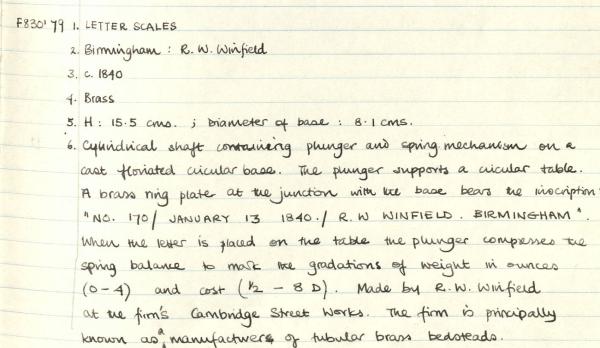 F830'79 1. LETTER SCALES
2. Birmingham : R. W. Winfield
3. c. 1840
4. Brass
5. H: 15.5 cms. ; Diameter of base : 8.1 cms.
6. Cylindrical shaft containing plunger and spring mechanism on a
cast floriated circular base. The plunger supports a circular table.
A brass ring plate at the junction with the base bears the inscription
"NO. 170/ JANUARY 13 1840./ R.W WINFIELD. BIRMINGHAM".
When the letter is placed on the table the plunger compresses the
spring balance to mark the gradations of weight in ounces
(0-4) and cost (½ - 8 D). Made by R.W. Winfield
at the firm's Cambridge Street Works. The firm is principally
known as a manufacturers of tubular brass bedsteads.